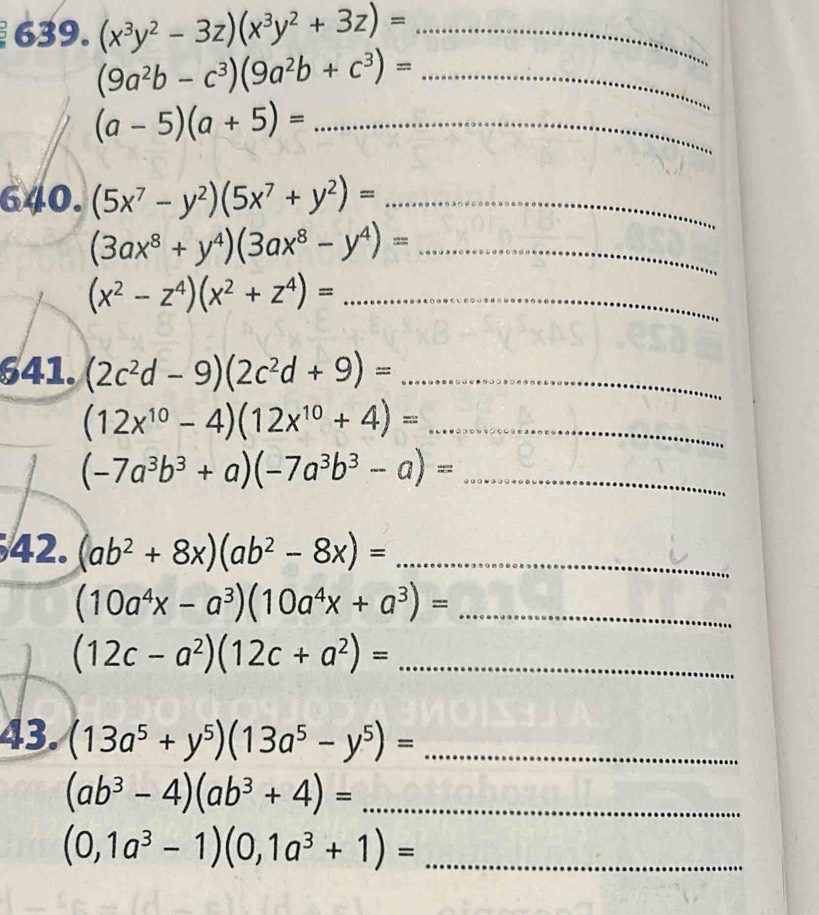 639. (x³y² − 3z)(x³y² + 3z) =
(9a²b − c³)(9a²b + c³) =
(a − 5)(a + 5) =
640. (5x⁷ − y²)(5x⁷ + y²) =
(3ax⁸ + y⁴)(3ax⁸ − y⁴) =
(x² − z⁴)(x² + z⁴) =
641. (2c²d − 9)(2c²d + 9) =
(12x¹⁰ − 4)(12x¹⁰ + 4) =
(−7a³b³ + a)(−7a³b³ − a) =
42. (ab² + 8x)(ab² − 8x) =
(10a⁴x − a³)(10a⁴x + a³) =
(12c − a²)(12c + a²) =
43. (13a⁵ + y⁵)(13a⁵ − y⁵) =
(ab³ − 4)(ab³ + 4) =
(0,1a³ − 1)(0,1a³ + 1) =